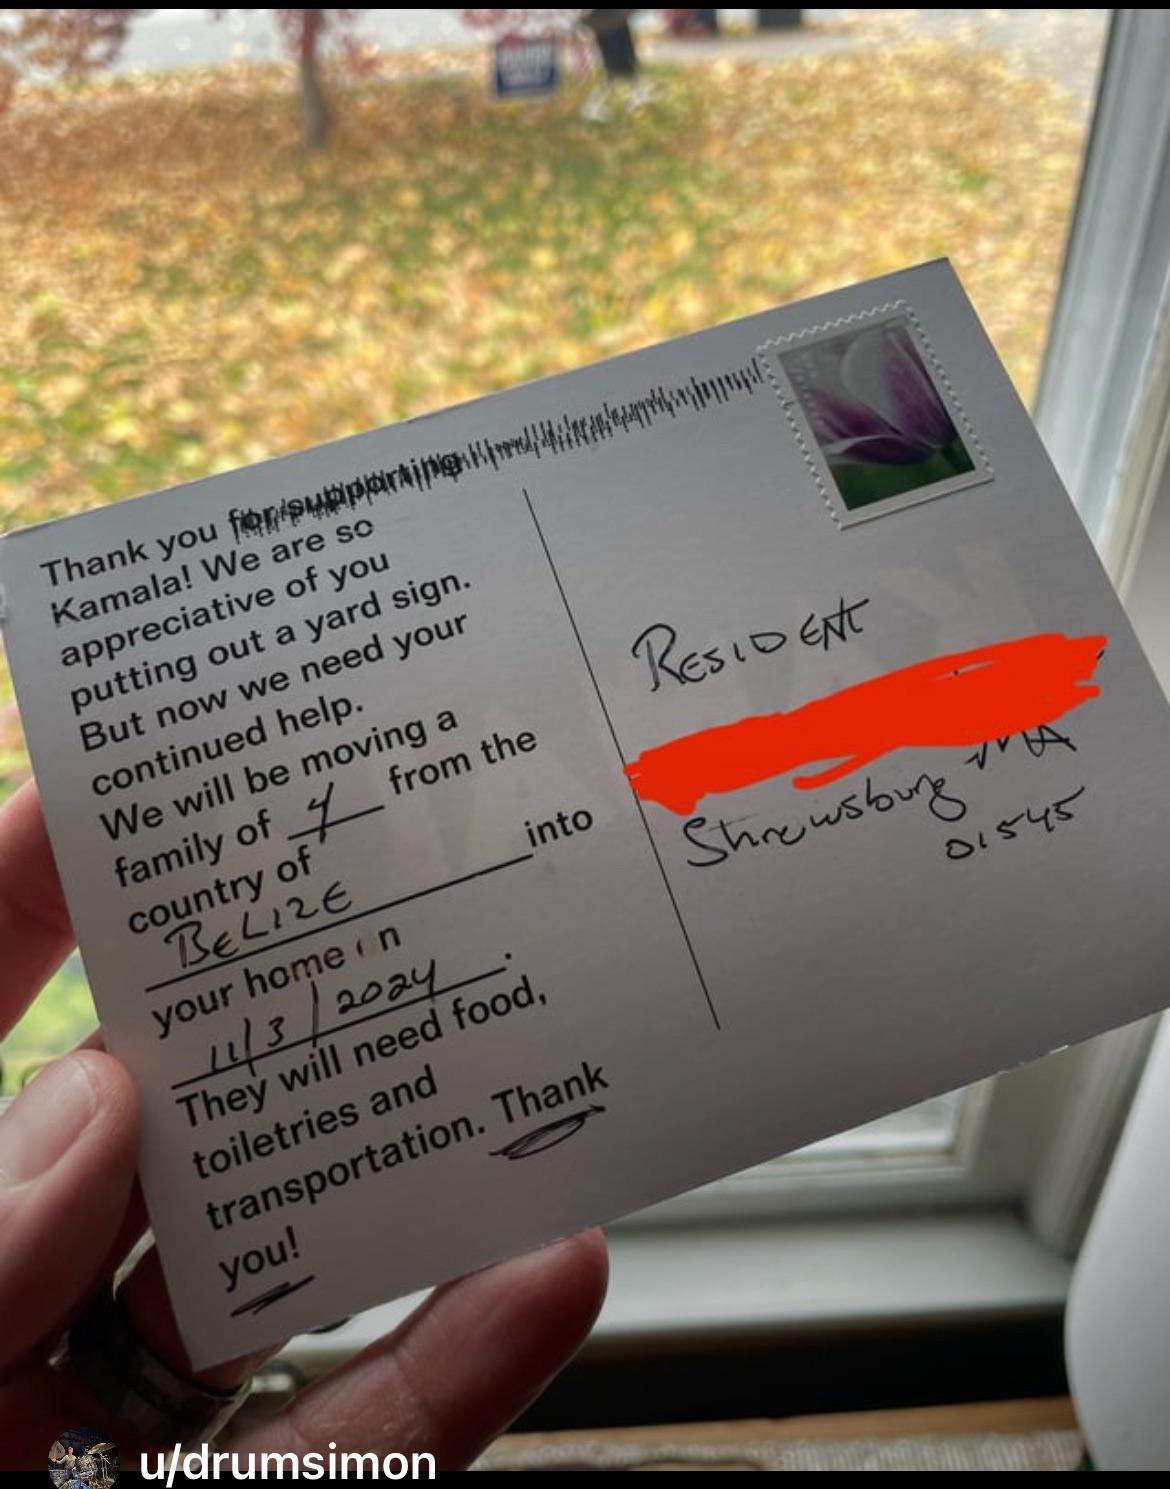 Thank you for supporting
Kamala! We are so
appreciative of you
putting out a yard sign.
But now we need your
continued help.
We will be moving a
family of 4 from the
country of
BELIZE into
your home on
11/3/2024.
They will need food,
toiletries and
transportation. Thank
you!
RESIDENT
MA
Shrewsbury
01545
u/drumsimon